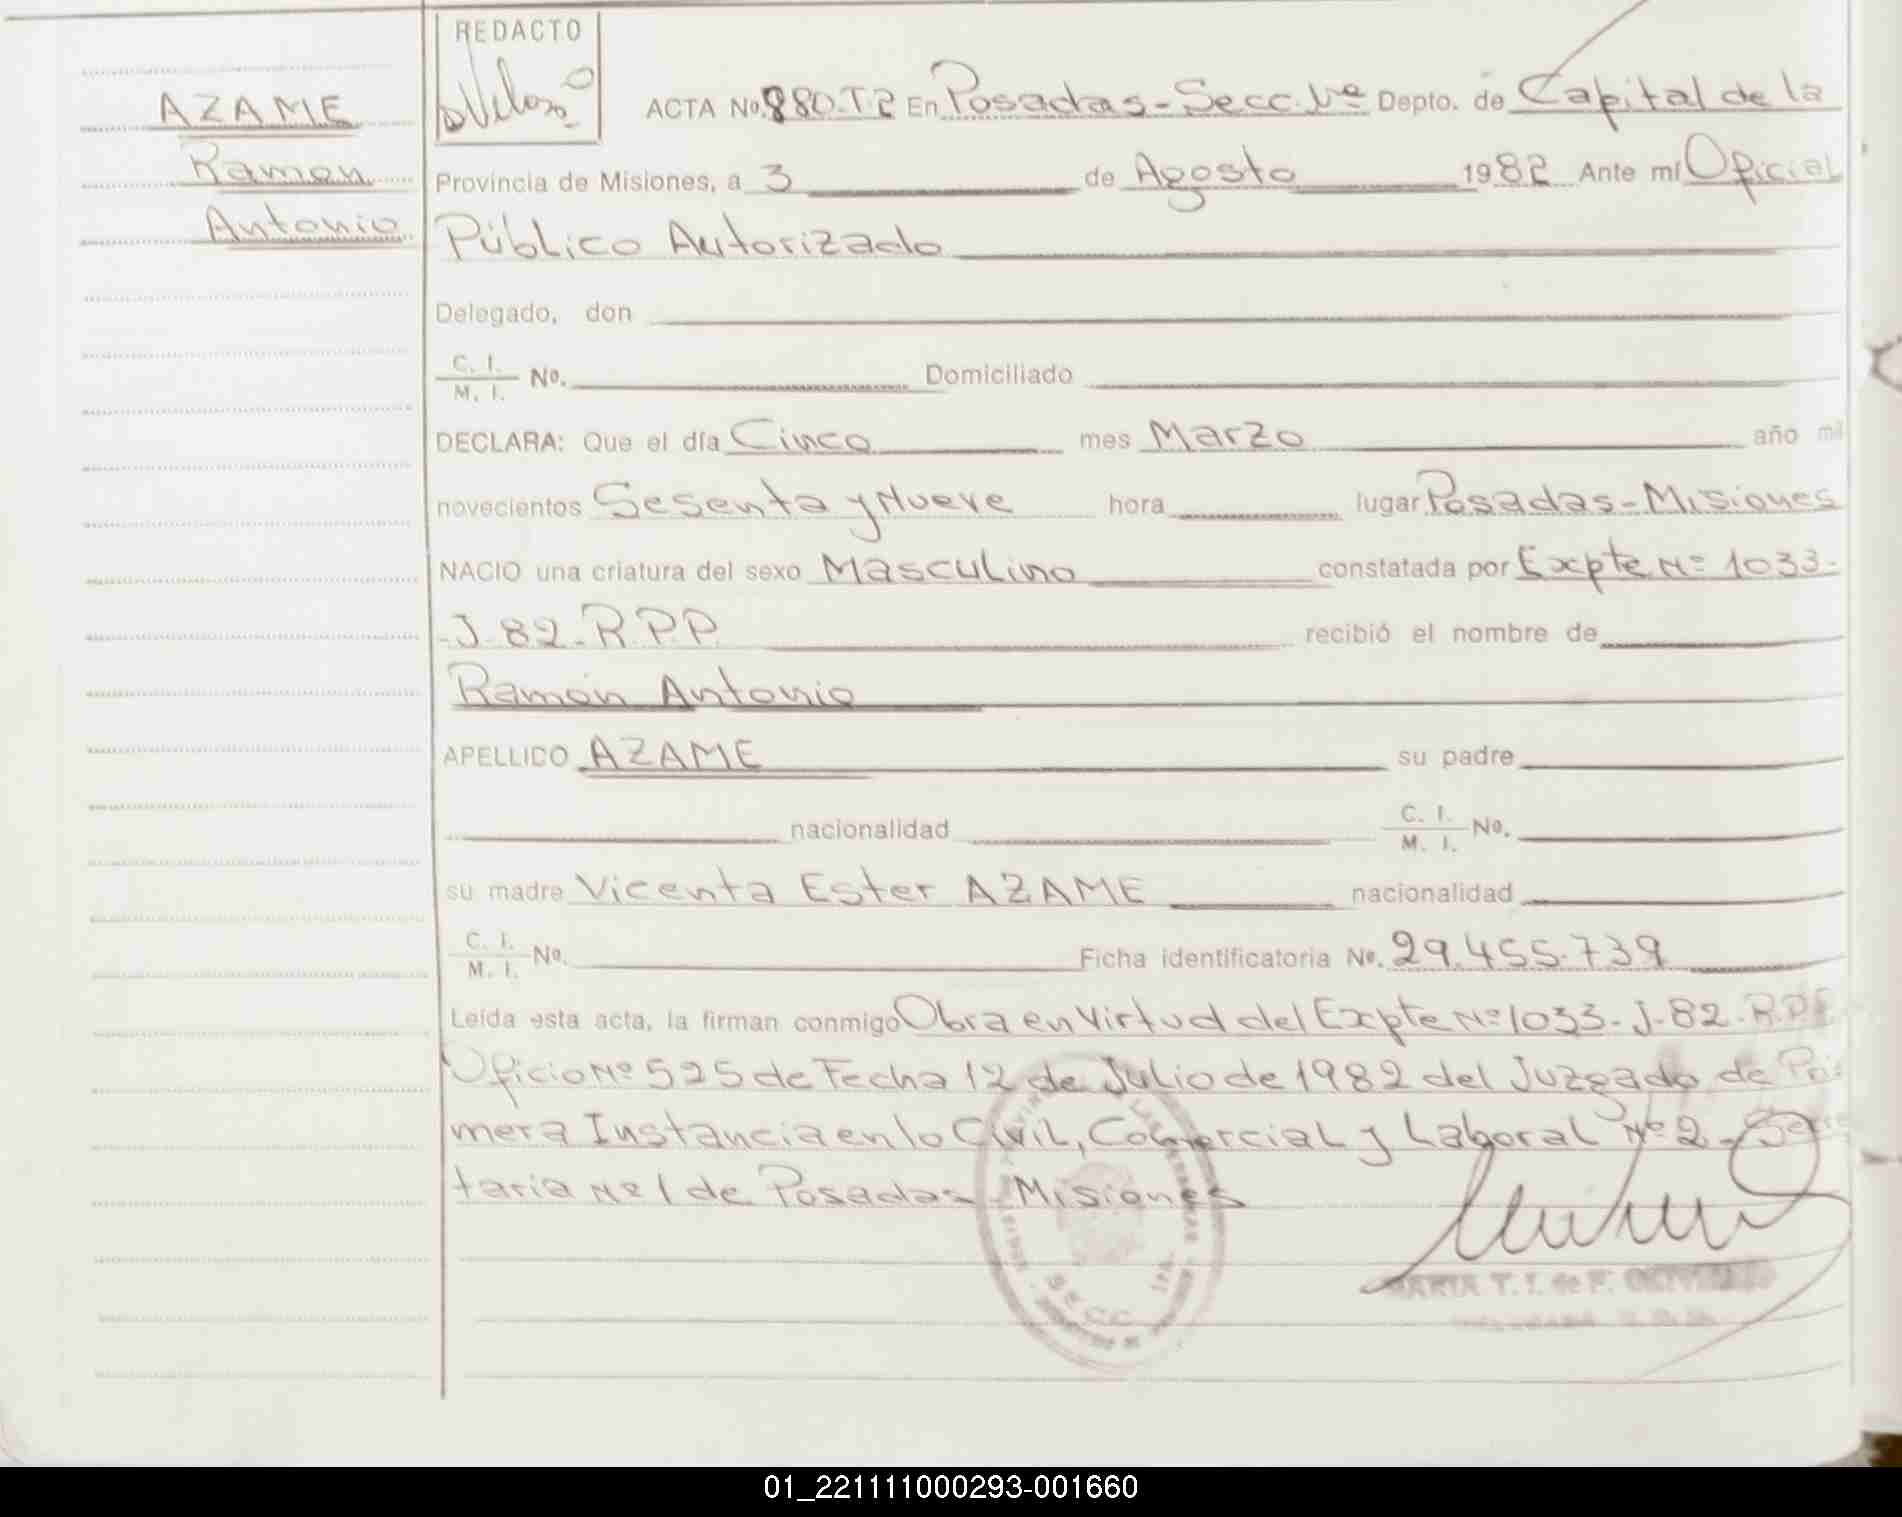 REDACTO
AZAME
Ramon
Antonio
ACTA No. 880.T.2 En Posadas - Secc. 1ª Depto. de Capital de la
Provincia de Misiones, a 3 de Agosto 1982 Ante mí Oficial
Público Autorizado
Delegado, don
C. I.
M. I. No. Domiciliado
DECLARA: Que el día Cinco mes Marzo año mil
novecientos Sesenta y Nueve hora lugar Posadas - Misiones
NACIO una criatura del sexo Masculino constatada por Expte Nº 1033-
-J-82-R.P.P. recibió el nombre de
Ramón Antonio
APELLIDO AZAME su padre
nacionalidad C. I.
M. I. No.
su madre Vicenta Ester AZAME nacionalidad
C. I.
M. I. No. Ficha identificatoria No. 29.455.739
Leída esta acta, la firman conmigo Obra en Virtud del Expte Nº 1033-J-82-R.P.P.
Oficio Nº 525 de Fecha 12 de Julio de 1982 del Juzgado de Pri-
mera Instancia en lo Civil, Comercial y Laboral Nº 2 - Secre
taria Nº 1 de Posadas - Misiones
SECC. 1ra.
MARIA T. I. de F.
01_221111000293-001660